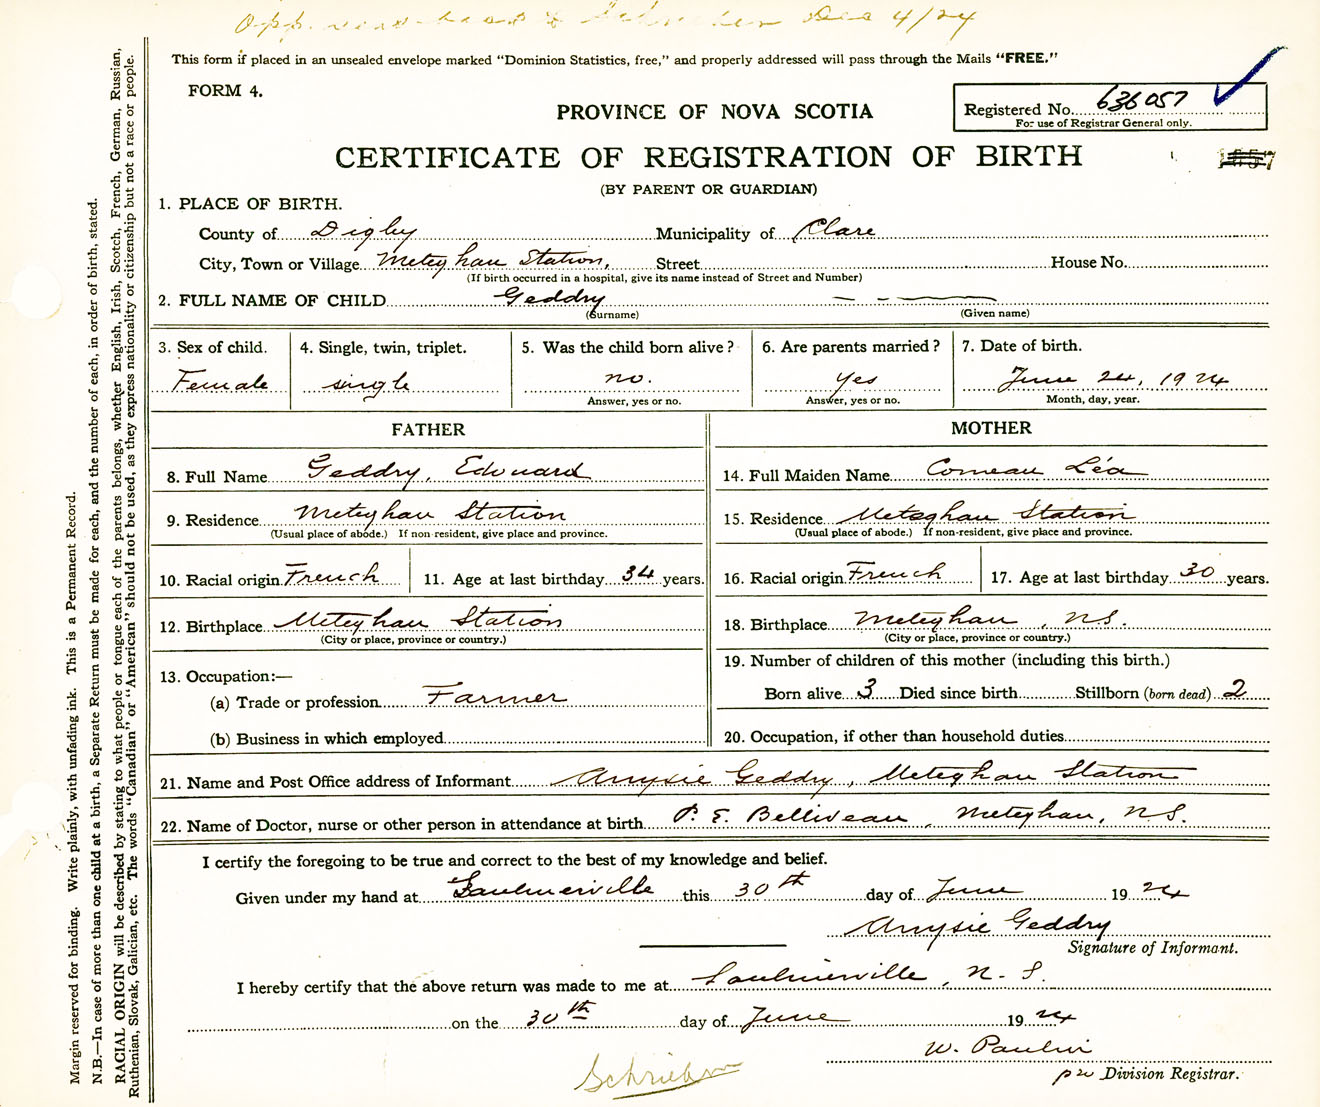 Dec 4/24
This form if placed in an unsealed envelope marked "Dominion Statistics, free," and properly addressed will pass through the Mails "FREE."
FORM 4.
PROVINCE OF NOVA SCOTIA
Registered No. 636057
For use of Registrar General only.
CERTIFICATE OF REGISTRATION OF BIRTH
(BY PARENT OR GUARDIAN)
1. PLACE OF BIRTH.
County of Digby Municipality of Clare
City, Town or Village Meteghan Station, Street House No.
(If birth occurred in a hospital, give its name instead of Street and Number)
2. FULL NAME OF CHILD Geddry — - —
(Surname) (Given name)
3. Sex of child. 4. Single, twin, triplet. 5. Was the child born alive? 6. Are parents married? 7. Date of birth.
Female single no. yes June 24, 1924
Answer, yes or no. Answer, yes or no. Month, day, year.
FATHER MOTHER
8. Full Name Geddry, Edouard 14. Full Maiden Name Comeau Léa
9. Residence Meteghan Station 15. Residence Meteghan Station
(Usual place of abode.) If non-resident, give place and province. (Usual place of abode.) If non-resident, give place and province.
10. Racial origin French 11. Age at last birthday 34 years. 16. Racial origin French 17. Age at last birthday 30 years.
12. Birthplace Meteghan Station 18. Birthplace Meteghan, NS.
(City or place, province or country.) (City or place, province or country.)
13. Occupation:— 19. Number of children of this mother (including this birth.)
(a) Trade or profession Farmer Born alive 3 Died since birth Stillborn (born dead) 2
(b) Business in which employed 20. Occupation, if other than household duties
21. Name and Post Office address of Informant Amysie Geddry, Meteghan Station
22. Name of Doctor, nurse or other person in attendance at birth P. E. Belliveau, Meteghan, NS.
I certify the foregoing to be true and correct to the best of my knowledge and belief.
Given under my hand at Saulnierville this 30th day of June 1924
Amysie Geddry
Signature of Informant.
I hereby certify that the above return was made to me at Saulnierville, N. S.
on the 30th day of June 1924
W. Paulin
Division Registrar.
Margin reserved for binding. Write plainly, with unfading ink. This is a Permanent Record.
N.B.—In case of more than one child at a birth, a Separate Return must be made for each, and the number of each, in order of birth, stated.
RACIAL ORIGIN will be described by stating to what people or tongue each of the parents belongs, whether English, Irish, Scotch, French, German, Russian,
Ruthenian, Slovak, Galician, etc. The words "Canadian" or "American" should not be used, as they express nationality or citizenship but not a race or people.